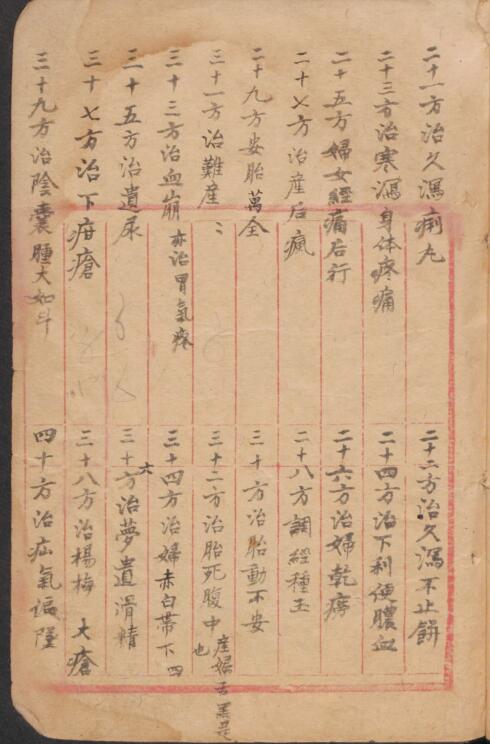 二十一方治久瀉痢丸
二十二方治久瀉不止餅
二十三方治寒瀉身体疼痛
二十四方治下利便膿血
二十五方婦女經痛后行
二十六方治婦乾癆
二十七方治産后瘋
二十八方調經種玉
二十九方安胎萬全
三十方治胎動不安
三十一方治難產
三十二方治胎死腹中 産婦舌黑是也
三十三方治血崩 亦治胃氣疼
三十四方治婦赤白帶下
三十五方治遺尿
三十六方治夢遺滑精
三十七方治下疳瘡
三十八方治楊梅大瘡
三十九方治陰囊腫大如斗
四十方治疝氣偏墜